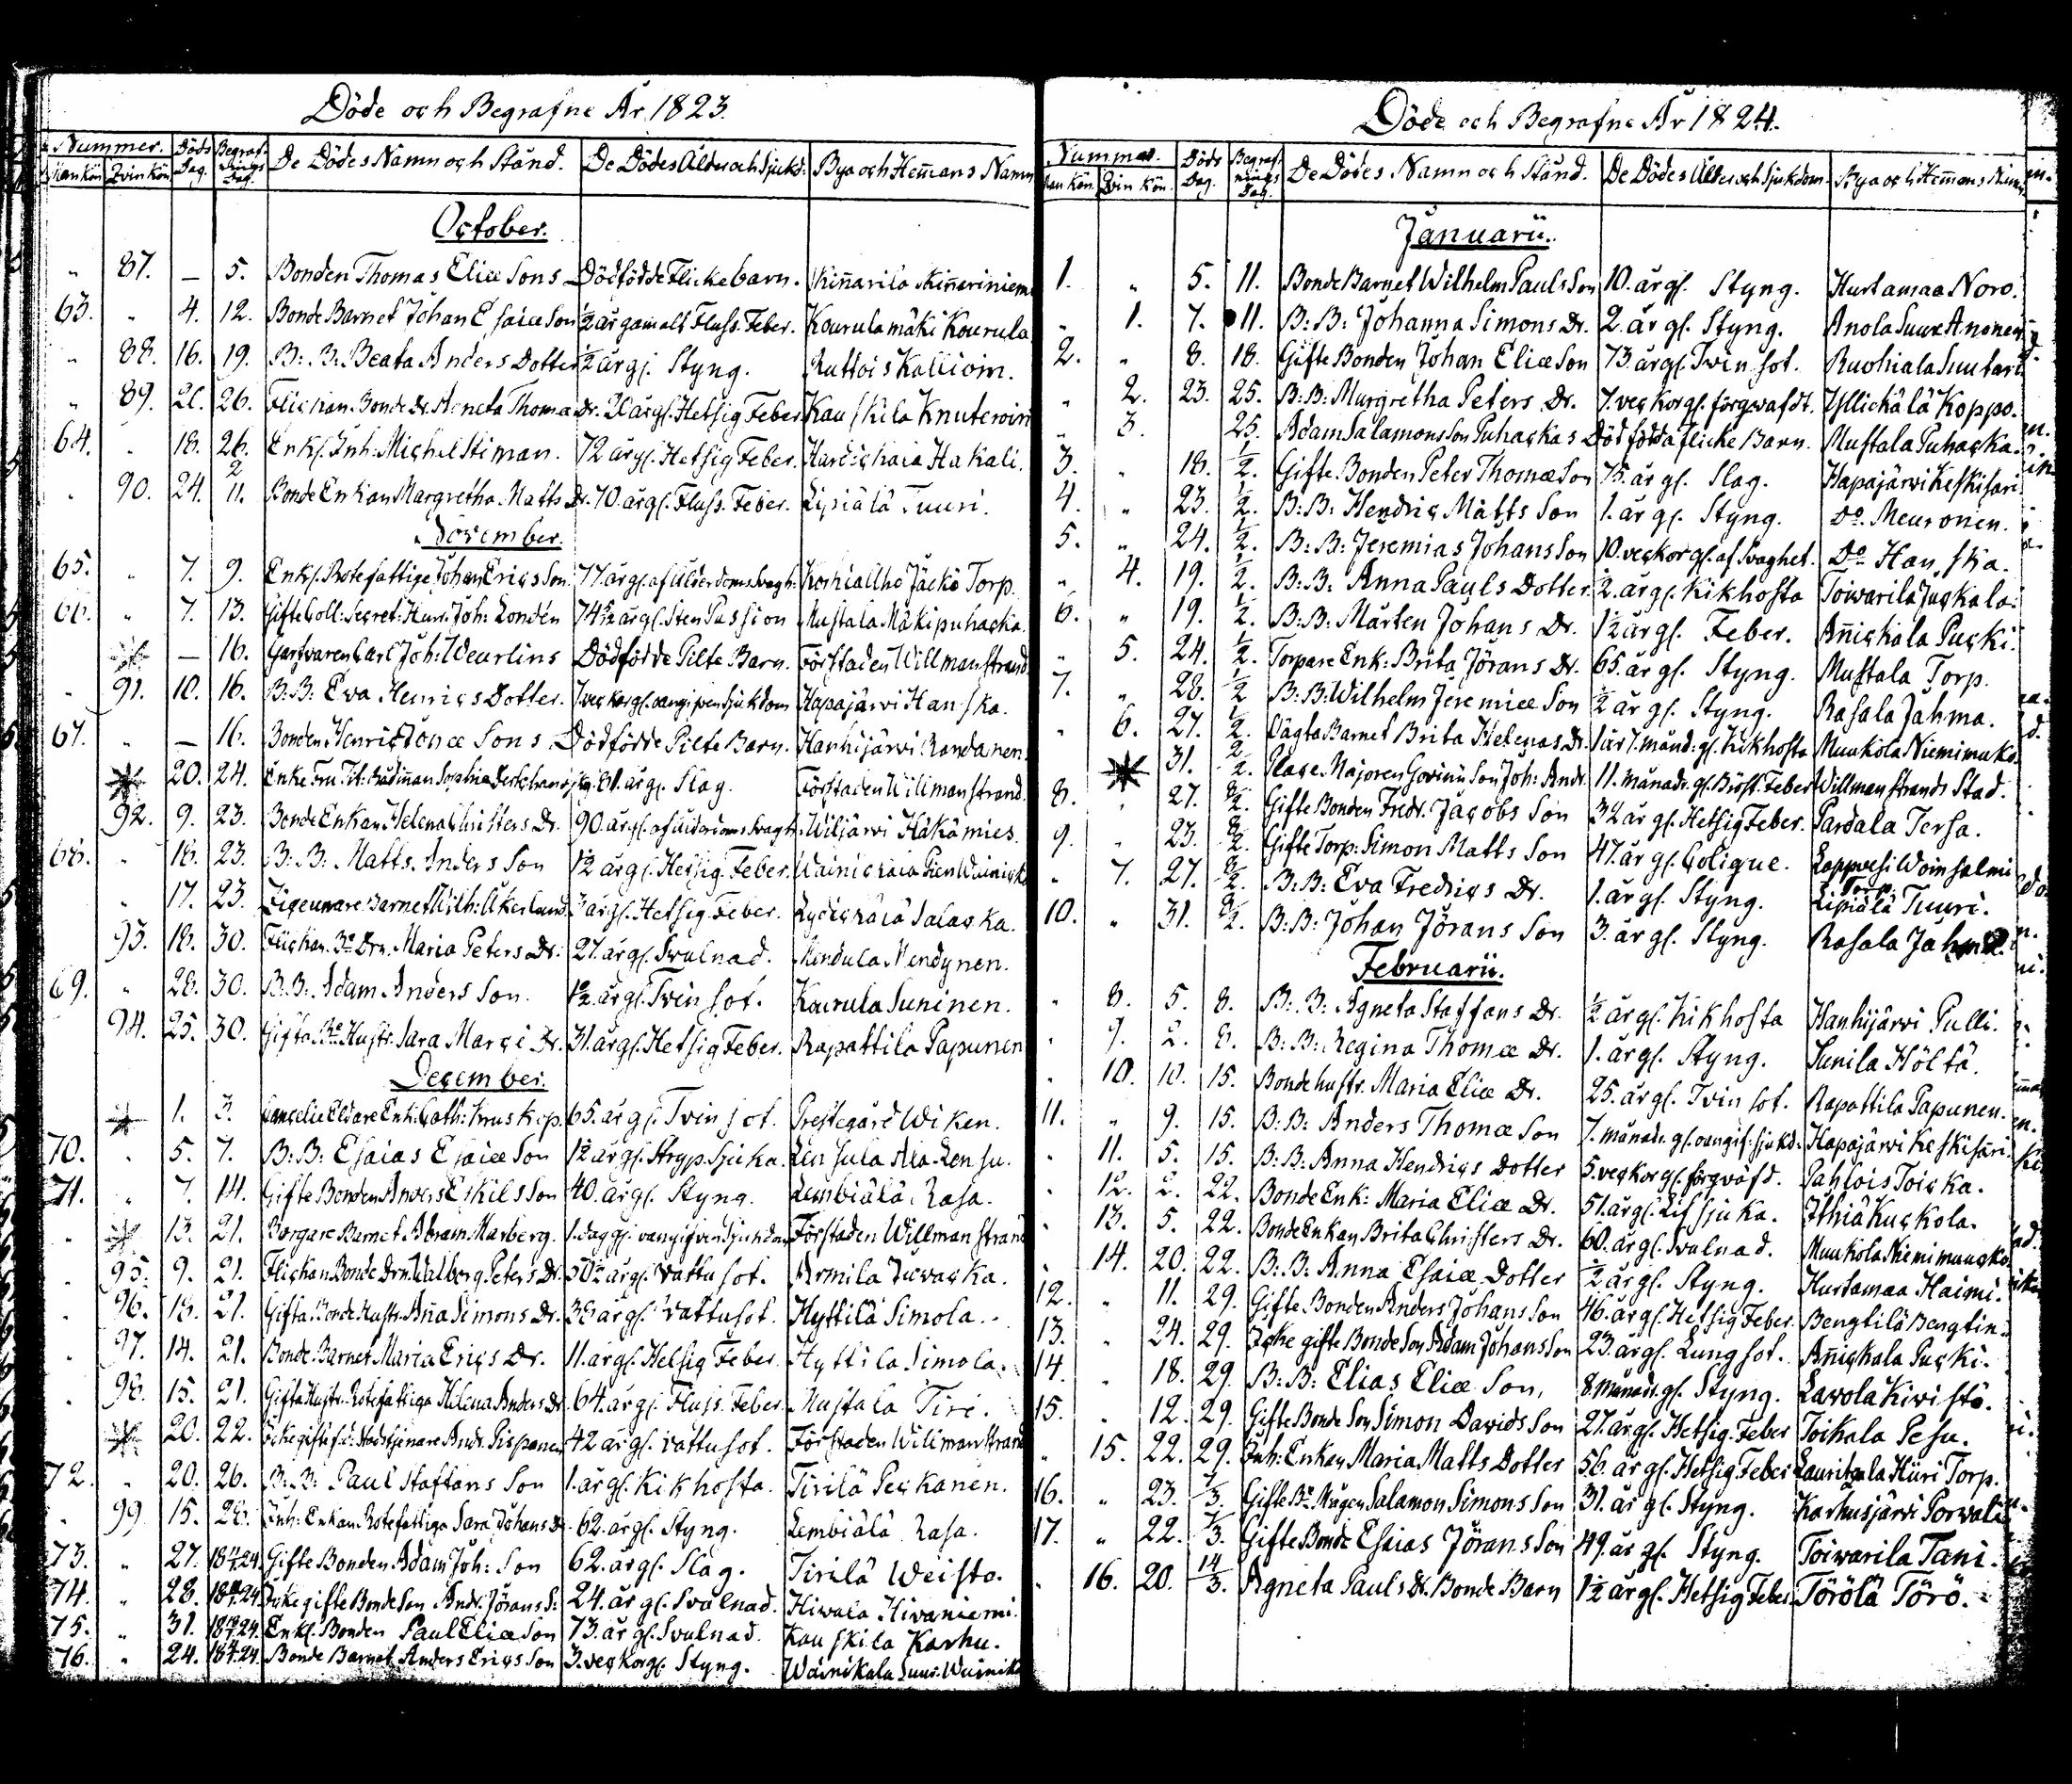 Döde och Begrafne År 1823.
Nummer. Döds Dag. Begrafnings Dag. De Dödes Namn och Stånd. De Dödes Ålder och Sjukd. Bya och Hem̄ans Namn
Man Kön Qvin Kön
October.
„ 87. — 5. Bonden Thomas Eliæ Sons Dödfödde Flickebarn. Kiñarila Kiñariniem
63. „ 4. 12. Bonde Barnet Johan Esaiæ Son ½ år gamalt Fluss. Feber. Kourulamäki Kourula
„ 88. 16. 19. B: B: Beata Anders Dotter ½ år gl. Styng. Ruttois Kallioin.
„ 89. 21. 26. Flickan Bonde Dr. Agneta Thomæ Dr. år gl. Hetsig Feber Kauskila Knuteroin
64. „ 18. 26. Enkl. Inh: Michel Stiman. 72 år gl. Hetsig Feber. Hakali.
„ 90. 24. 2/11. Bonde Enkan Margretha Matts Dr. 70. år gl. Fluss. Feber. Lipiälä Tuuri.
November.
65. „ 7. 9. Enkl. Rotefattige Johan Erics Son 77. år gl. af Ålderdoms Svagh. Jäckö Torp.
66. „ 7. 13. Gifte Coll: Secret: Herr. Joh: Londén 74½ år gl. Sten Passion Mustala Mäkipuhacka.
— 16. Garfvaren Carl Joh: Weurlins Dödfödde Pilte Barn. Förstaden Willmanstrand
„ 91. 10. 16. B: B: Eva Henrics Dotter. 7. veckor gl. oangifven Sjukdom Hapajärvi Hanska.
67. „ — 16. Bonden Henric Jonæ Sons Dödfödde Pilte Barn. Hanhijärvi Randanen.
20. 24. Enke Fru Tit: Rådiñan Sophia 81. år gl. Slag. Förstaden Willmanstrand.
92. 9. 23. Bonde Enkan Helena Christers Dr. 90. år gl. af Ålderdoms Svagh. Wiljärvi Häkämies.
68. „ 18. 23. B: B: Matts Anders Son 1½ år gl. Hetsig Feber.
„ 17. 23. Zigeunare Barnet Wilh: Åkerlund 3 år gl. Hetsig Feber. Salacka.
93. 18. 30. Flickan Be. Drn. Maria Peters Dr. 27. år gl. Svulnad. Mendula Mendynen.
69. „ 28. 30. B: B: Adam Anders Son. 1½. år gl. Tvin sot. Kourula Suninen.
94. 25. 30. Gifta Be. Hustr. Sara Marci Dr. 31. år gl. Hetsig Feber. Rapattila Papunen
December.
1. 3. Cancelie Eldare Enk: Cath: Kruskop. 65. år gl. Tvin sot. Prestegård Wiken.
70. „ 5. 7. B: B: Esaias Esaiæ Son 1½ år gl. Stryp Sjuka. Lensula Ala-Lensu.
71. „ 7. 14. Gifte Bonden Anders Eskils Son 40. år gl. Styng. Lembiälä Rasa.
13. 21. Borgare Barnet Abram Marberg. 1. dag gl. oangifven Sjukdom Förstaden Willmanstrand
95. 9. 21. Flickan Bonde Drn. Walborg Peters Dr. 50½ år gl. Vattu sot. Armila
96. 18. 21. Gifta Bonde Hustr. Aña Simons Dr. år gl. Vattusot. Hyttilä Simola.
97. 14. 21. Bonde Barnet Maria Erics Dr. 11. år gl. Hetsig Feber. Hyttilä Simola.
98. 15. 21. Gifta Hustr. Rotefattiga Helena Anders Dr. 64. år gl. Fluss. Feber Mustala Tiri.
20. 22. Ickegifte f.d: Stadstjenare Andr. Pispanen 42 år gl. Vattusot. Förstaden Willmanstrand
72. „ 20. 26. B: B: Paul Staffans Son 1. år gl. Kikhosta. Tirilä Peckanen.
99 15. 28. Inh: Enkan Rotefattiga Sara Johans Dr. 62. år gl. Styng. Lembiälä Rasa.
73. „ 27. Gifte Bonden Adam Joh: Son 62. år gl. Slag. Tirilä Weisto.
74. „ 28. Ickegifte Bonde Son Andr. Jörans S: 24. år gl. Svulnad. Hiwala Hivaniemi.
75. „ 31. Enkl. Bonden Paul Eliæ Son 73. år gl. Svulnad. Kauskila Karhu.
76. „ 24. Bonde Barnet Anders Erics Son 3. veckor gl. Styng. Wainikala Suur-Wainika
Döde och Begrafne År 1824.
Nummer. Döds Dag. Begrafnings Dag. De Dödes Namn och Stånd. De Dödes Ålder och Sjukdom. Bya och Hem̄ans Namn
Man Kön. Qvin Kön.
Januarii.
1. „ 5. 11. Bonde Barnet Wilhelm Pauls Son 10. år gl. Styng. Hurtamaa Noro.
„ 1. 7. 11. B: B: Johanna Simons Dr. 2. år gl. Styng. Anola Suur Anonen
2. „ 8. 18. Gifte Bonden Johan Eliæ Son 73. år gl. Tvin sot. Ruohiala Suutari
„ 2. 23. 25. B: B: Margretha Peters Dr. 7. veckor gl. förqvafdt. Yllickälä Koppo.
„ 3. 25. Adam Salamons Son Puhackas Dödfödda flicke Barn. Mustala Puhacka.
3. „ 18. 1/2. Gifte Bonden Peter Thomæ Son 75. år gl. Slag. Hapajärvi Keskisari
4. „ 23. 1/2. B: B: Hendric Matts Son 1. år gl. Styng. Do. Meuronen.
5. „ 24. 1/2. B: B: Jeremias Johans Son 10. veckor gl. af Svaghet. Do Hanska.
„ 4. 19. 1/2. B: B: Anna Pauls Dotter 2. år gl. Kikhosta Toiwarila Juckala.
6. „ 19. 1/2. B: B: Mårten Johans Dr. 1½ år gl. Feber. Añickala Pucki.
„ 5. 24. 1/2. Torpare Enk: Brita Jörans Dr. 65. år gl. Styng. Mustala Torp.
7. „ 28. 1/2 B: B: Wilhelm Jeremiæ Son ½ år gl. Styng. Rasala Jahma.
„ 6. 27. 1/2. Oägta Barnet Brita Helenas Dr. 1 år 7. månd: gl. Kikhosta Muukola Niemimuko.
31. 2/2. Place Majoren Gorinii Son Joh: Andr. 11. månadr. gl. Bröst. Feber Willmanstrands Stad.
8. „ 27. 8/2. Gifte Bonden Fredr. Jacobs Son 32 år gl. Hetsig Feber. Pardala Tersa.
9. „ 23. 8/2. Gifte Torp: Simon Matts Son 47. år gl. Colique. Lappvesi Woinsalmi Torp.
„ 7. 27. 8/2. B: B: Eva Fredrics Dr. 1. år gl. Styng. Lipiälä Tuuri.
10. „ 31. 8/2. B: B: Johan Jörans Son 3. år gl. Styng. Rasala Jahma.
Februarii.
„ 8. 5. 8. B: B: Agneta Staffans Dr. ½ år gl. Kikhosta Hanhijärvi Pulli.
„ 9. 2. 8. B: B: Regina Thomæ Dr. 1. år gl. Styng. Sunila Höltä.
„ 10. 10. 15. Bondehustr. Maria Eliæ Dr. 25. år gl. Tvin sot. Rapattila Papunen.
11. „ 9. 15. B: B: Anders Thomæ Son 7. månadr. gl. oangif: sjukd: Hapajärvi Keskisari.
„ 11. 5. 15. B: B: Anna Hendrics Dotter 5. veckor gl. förqväfd. Pahlois Toicka.
„ 12. 2. 22. Bonde Enk: Maria Eliæ Dr. 51. år gl. Lif sjuka. Ihiä Kuckola.
„ 13. 5. 22. Bonde Enkan Brita Christers Dr. 60. år gl. Svulnad. Muukola Niemimuucko
„ 14. 20. 22. B: B: Anna Esaiæ Dotter ½ år gl. Styng. Hurtamaa Haimi.
12. „ 11. 29. Gifte Bonden Anders Johans Son 46. år gl. Hetsig Feber. Bengtilä Bengtin.
13. „ 24. 29. Icke gifte Bonde Son Adam Johans Son 23. år gl. Lungsot. Añickala Pucki.
14 „ 18. 29. B: B: Elias Eliæ Son, 8. månadr. gl. Styng. Lavola Kiwistö.
15. „ 12. 29. Gifte Bonde Son Simon Davids Son 27. år gl. Hetsig Feber Toikala Pesu.
„ 15. 22. 29. Inh: Enkan Maria Matts Dotter 56. år gl. Hetsig Feber Lauritsala Hüri Torp.
16. „ 23. 7/3. Gifte Be. Mågen Salamon Simons Son 31. år gl. Styng. Karhusjärvi Porvali
17. „ 22. 7/3. Gifte Bonde Esaias Jörans Son 49. år gl. Styng. Toiwarila Tani.
„ 16. 20. 14/3. Agneta Pauls Dr. Bonde Barn 1½ år gl. Hetsig Feber Törölä Törö.